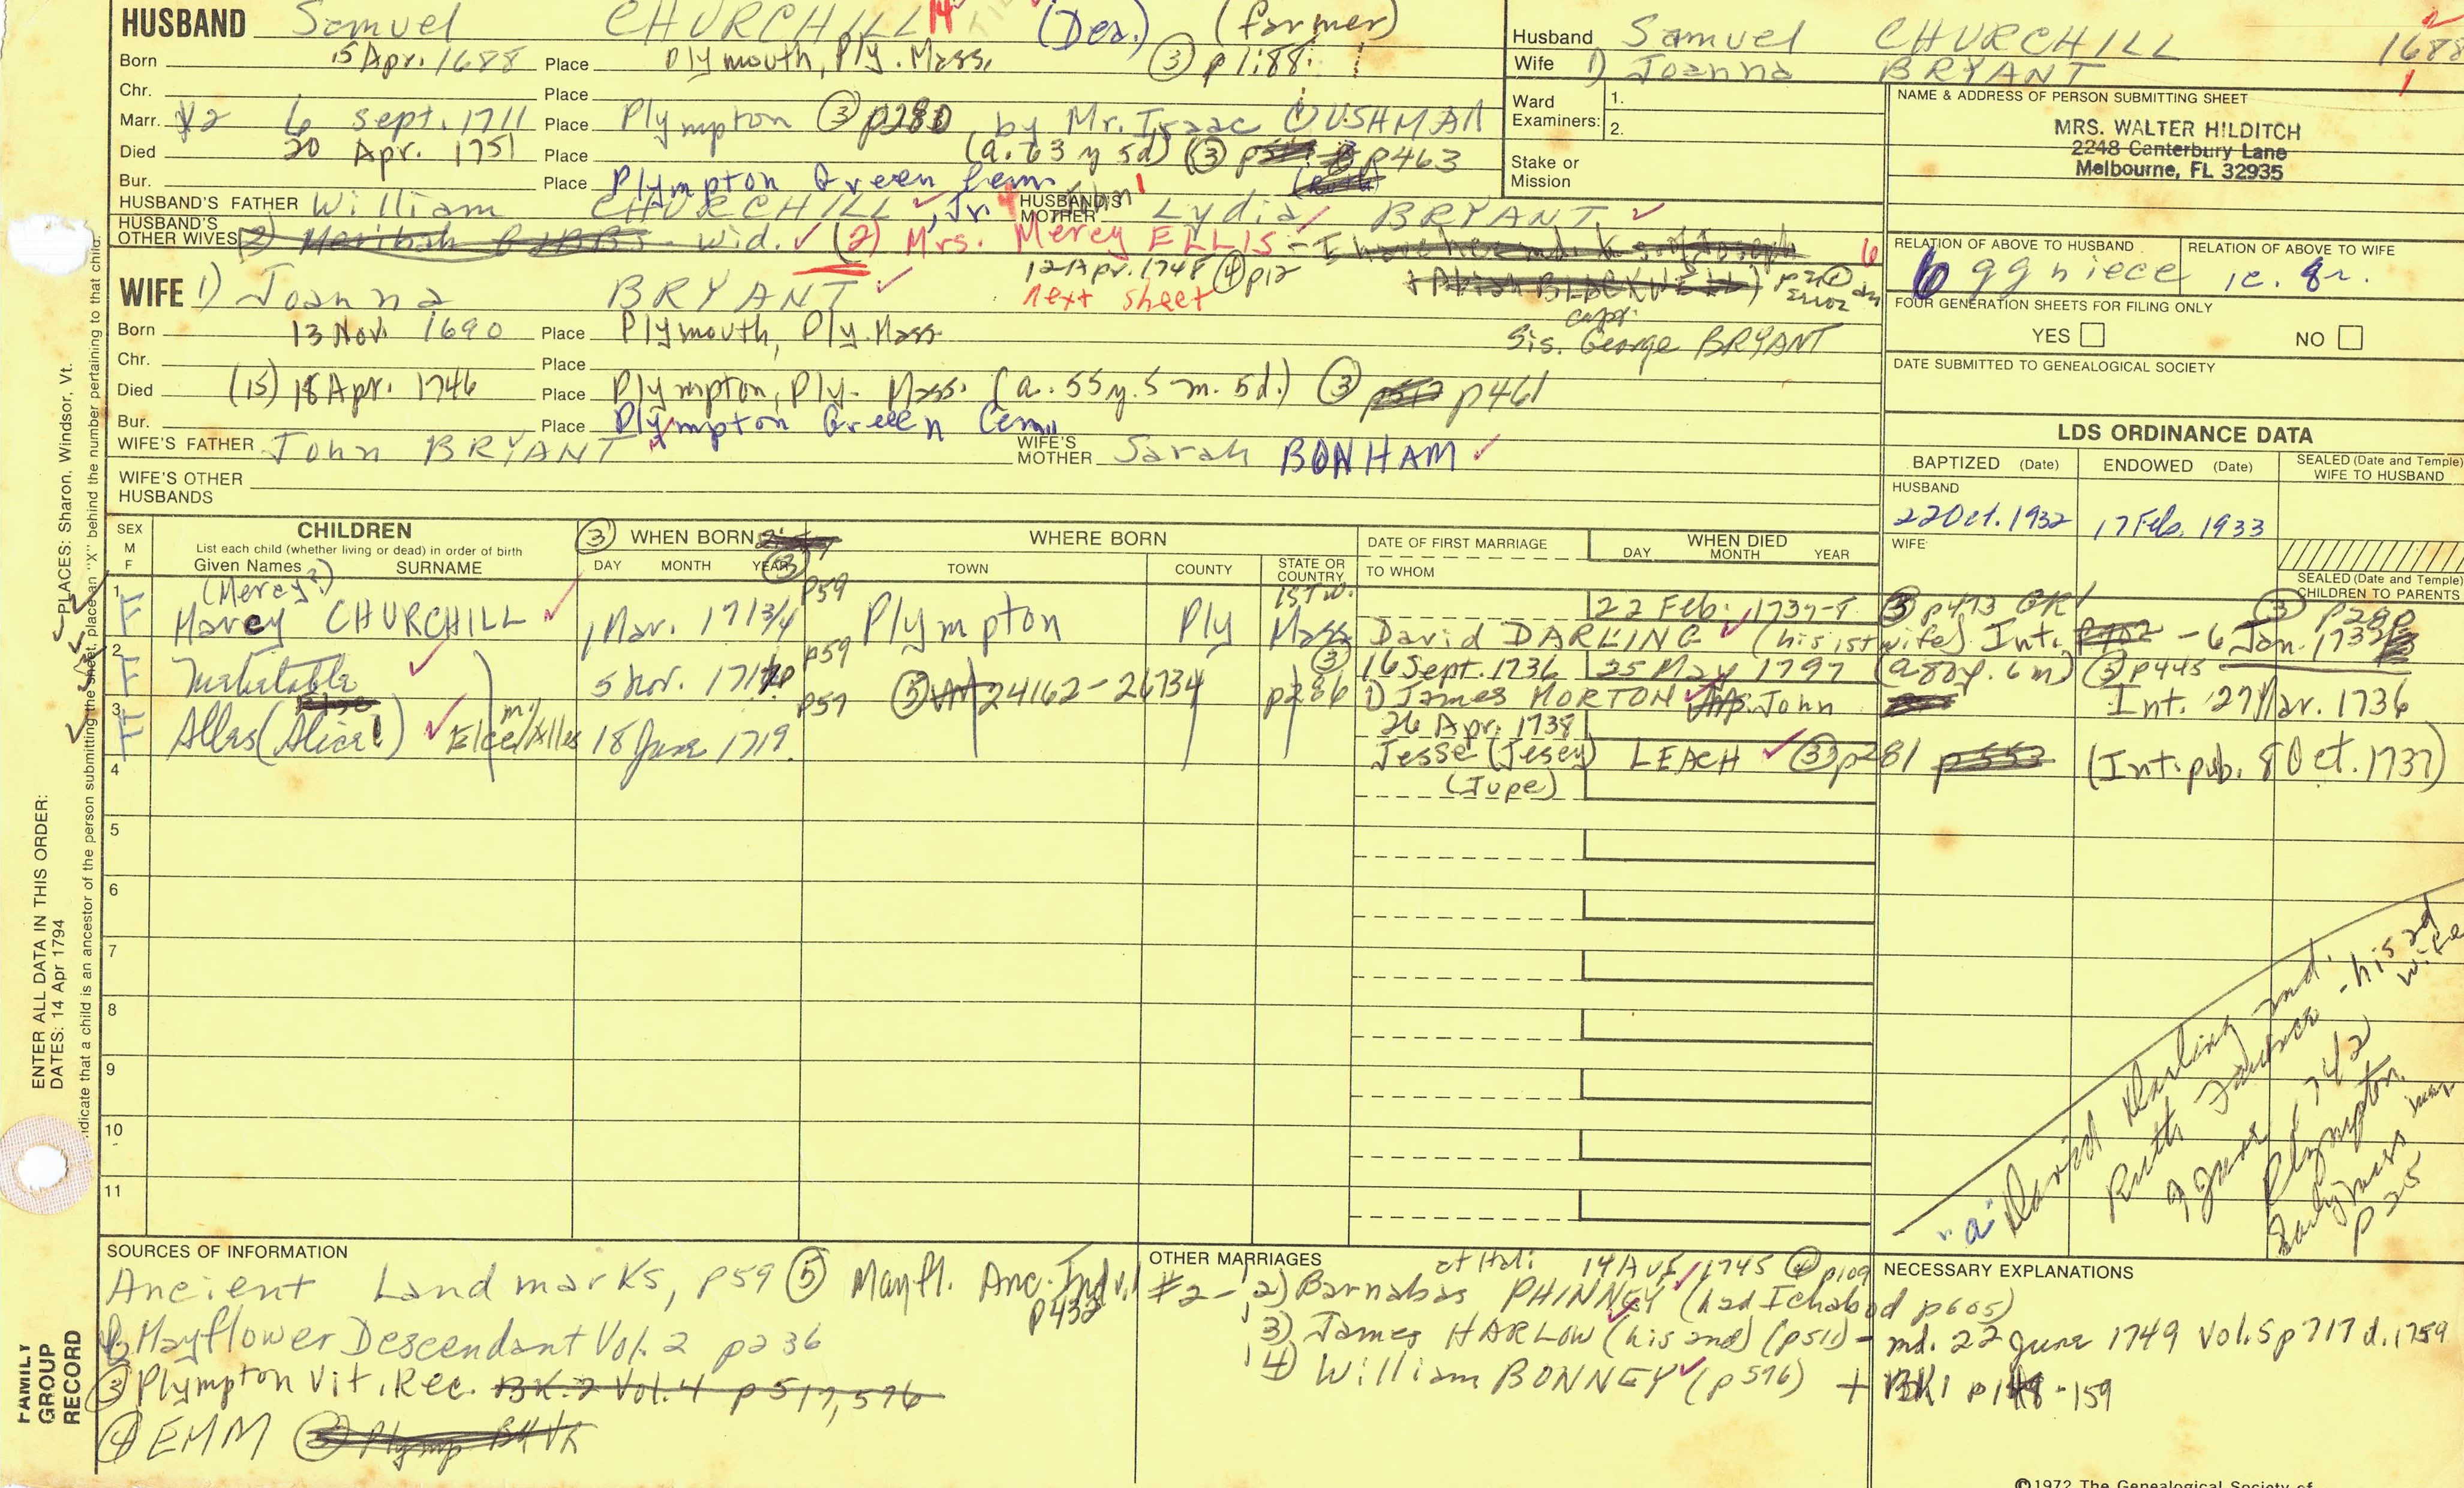 HUSBAND Samuel CHURCHILL (Dea.) (farmer)
Born 15 Apr. 1688 Place Plymouth, Ply. Mass. ③ p 1:88
Chr. Place
Marr. 6 Sept. 1711 Place Plympton ③ p280, by Mr. Isaac CUSHMAN
Died 20 Apr. 1751 Place (a. 63 y 5d) ③ p463
Bur. Place Plympton Green Cem
HUSBAND'S FATHER William CHURCHILL, Jr. HUSBAND'S MOTHER Lydia BRYANT
HUSBAND'S OTHER WIVES wid. (2) Mrs. Mercy ELLIS
12 Apr. 1748 ④ p12
next sheet
Husband Samuel CHURCHILL 1688
Wife 1) Joanna BRYANT
Ward Examiners: 1.
2.
Stake or Mission
NAME & ADDRESS OF PERSON SUBMITTING SHEET
MRS. WALTER HILDITCH
2248 Canterbury Lane
Melbourne, FL 32935
RELATION OF ABOVE TO HUSBAND 6 ggniece
RELATION OF ABOVE TO WIFE 1c. 8r.
FOUR GENERATION SHEETS FOR FILING ONLY
YES NO
DATE SUBMITTED TO GENEALOGICAL SOCIETY
WIFE 1) Joanna BRYANT
Born 13 Nov. 1690 Place Plymouth, Ply. Mass
Sis. George BRYANT
Chr. Place
Died (15) 18 Apr. 1746 Place Plympton, Ply. Mass. (a. 55y. 5m. 5d.) ③ p461
Bur. Place Plympton Green Cem
WIFE'S FATHER John BRYANT WIFE'S MOTHER Sarah BONHAM
WIFE'S OTHER HUSBANDS
LDS ORDINANCE DATA
BAPTIZED (Date) ENDOWED (Date) SEALED (Date and Temple) WIFE TO HUSBAND
HUSBAND
22 Oct. 1932 17 Feb. 1933
WIFE
SEALED (Date and Temple) CHILDREN TO PARENTS
SEX M F
CHILDREN
List each child (whether living or dead) in order of birth
Given Names SURNAME
③ WHEN BORN
DAY MONTH YEAR
WHERE BORN
TOWN COUNTY STATE OR COUNTRY
DATE OF FIRST MARRIAGE
TO WHOM
WHEN DIED
DAY MONTH YEAR
(Mercy?)
1 F CHURCHILL 1 Mar. 1713/4 p59 Plympton Ply Mass 22 Feb. ③ p473 ③ p280
David DARLING (his 1st wife) Int. 6 Jan.
2 F 5 Nov. p59 16 Sept. 1736 25 May 1797 ③ p445
24162- p286 1) James John Int. 27 Mar. 1736
3 F Alles (Alice) 18 June 1719 p59 26 Apr. 1738
Jesse (Jesey) LEACH ③ p281 (Int. pub. 8 Oct. 1737)
(Jupe)
4
5
6
7
8
9
10
11
"a" David Darling md.
Ruth Faunce - his 2d wife
9 June 1742
Plympton
p 25
SOURCES OF INFORMATION
Ancient Landmarks, p59 ⑤ Mayfl. Anc. p432
Mayflower Descendant Vol. 2 p236
③ Plympton Vit. Rec. BK. 2 Vol. 4 p 517, 576
④ EMM
OTHER MARRIAGES
#2 - 2) Barnabas PHINNEY (had Ichabod p605)
3) James HARLOW (his 2nd) (p511) - md. 22 June 1749 Vol. 5 p717 d. 1759
4) William BONNEY (p 576) + BK1
NECESSARY EXPLANATIONS
ENTER ALL DATA IN THIS ORDER:
DATES: 14 Apr 1794
PLACES: Sharon, Windsor, Vt.
indicate that a child is an ancestor of the person submitting the sheet, place an "X" behind the number pertaining to that child.
FAMILY GROUP RECORD
©1972 The Genealogical Society of